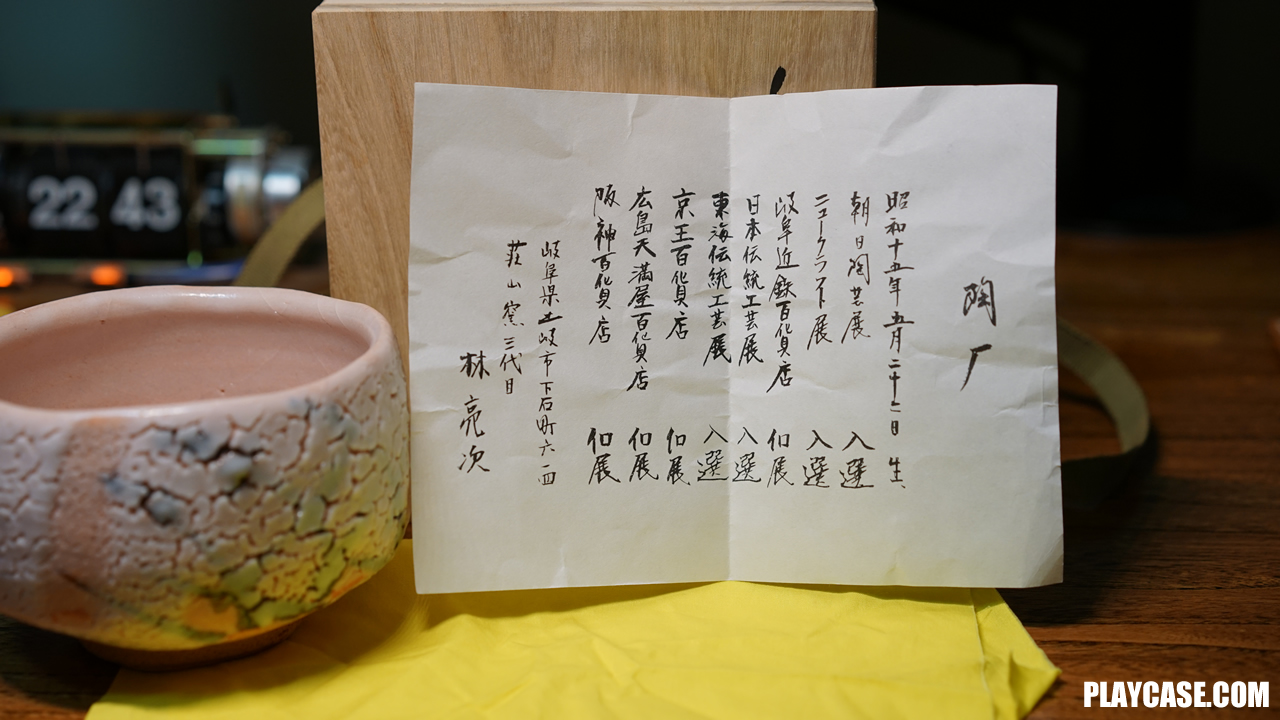 陶厂
昭和十五年五月二十二日 生、
朝日陶芸展 入選
ニュークラフト展 入選
岐阜近鉄百貨店 個展
日本伝統工芸展 入選
東海伝統工芸展 入選
京王百貨店 個展
広島天満屋百貨店 個展
阪神百貨店 個展
岐阜県土岐市下石町六一四
荘山窯三代目
林亮次
22 43
PLAYCASE.COM